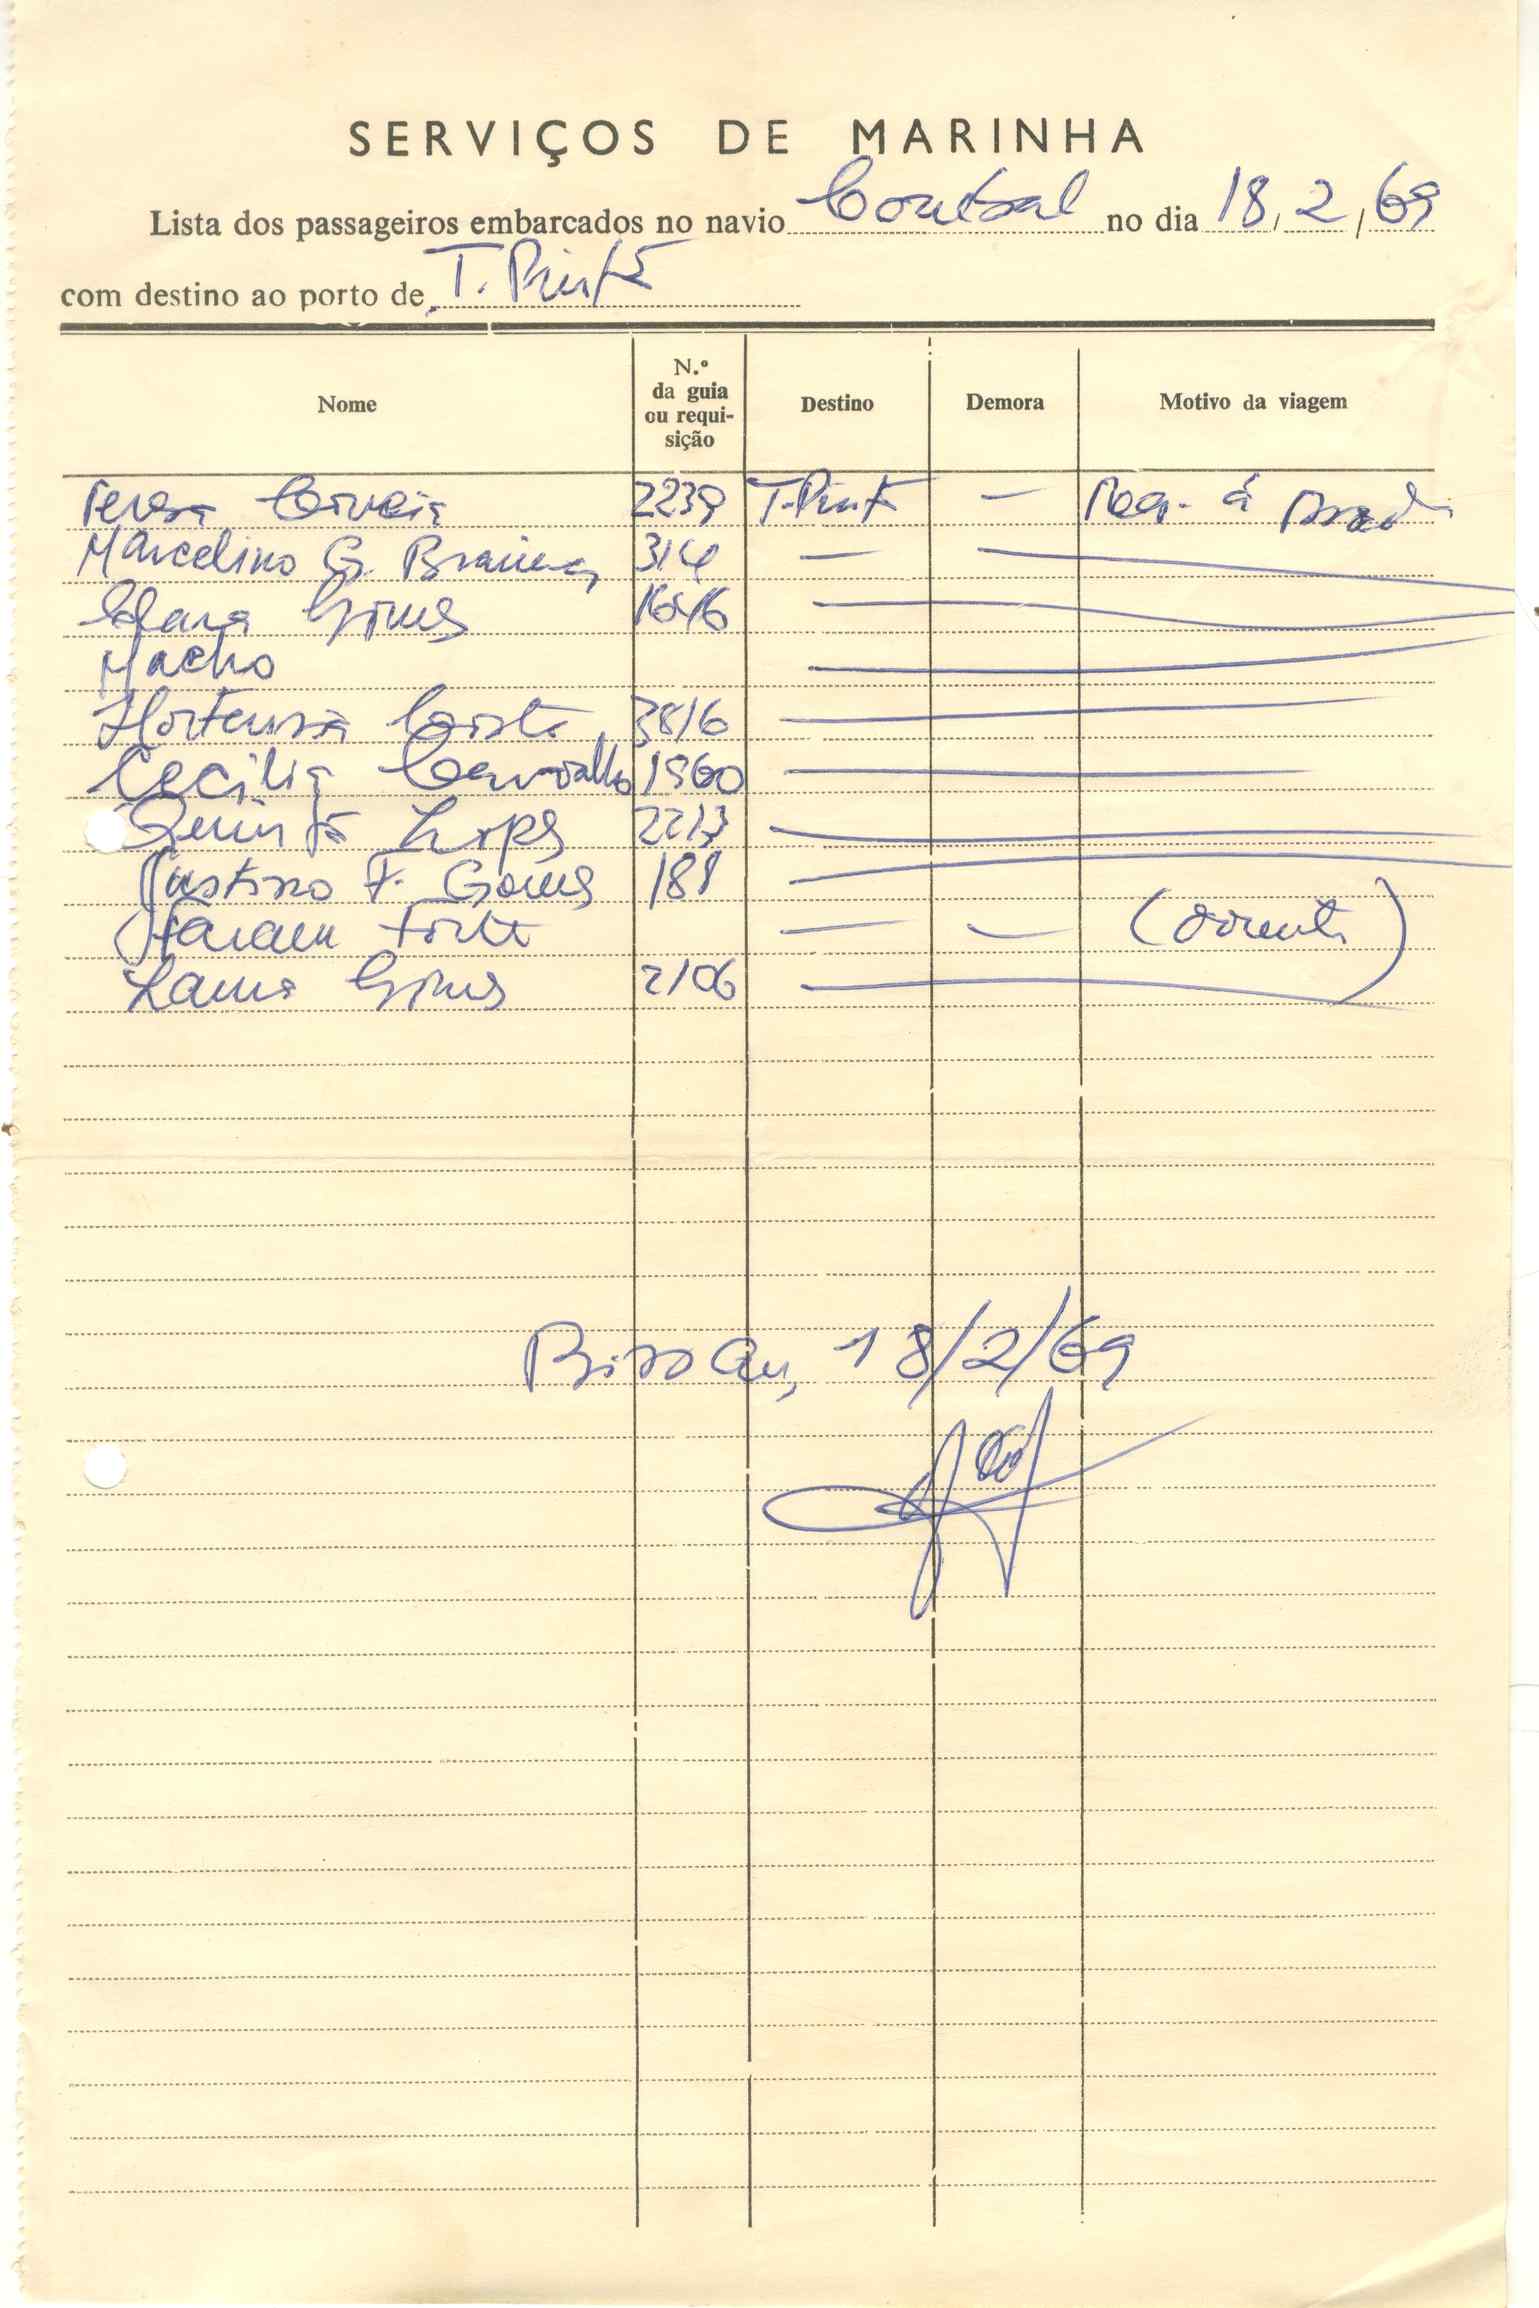 SERVIÇOS DE MARINHA
Lista dos passageiros embarcados no navio no dia 18, 2, 69
com destino ao porto de T. Pinto
Nome N.º da guia ou requi-sição Destino Demora Motivo da viagem
Teresa Correia 2239 T. Pinto — Reg. á
Marcelino G. 314 — —
Gomes 1646 —
Macho —
Hortensia Costa 3816 —
Cecilia Carvalho 1960 —
Quinta Lopes 2213 —
Justino F. Gomes 188 —
— — (doente)
Gomes 2106 —
Bissau, 18/2/69